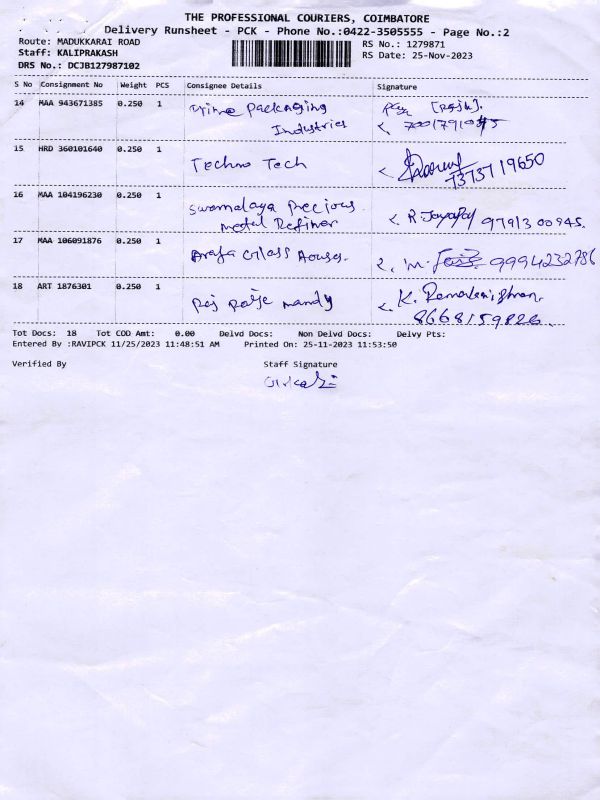 THE PROFESSIONAL COURIERS, COIMBATORE
Delivery Runsheet - PCK - Phone No.:0422-3505555 - Page No.:2
Route: MADUKKARAI ROAD
RS No.: 1279871
Staff: KALIPRAKASH
RS Date: 25-Nov-2023
DRS No.: DCJB127987102
S No Consignment No Weight PCS Consignee Details Signature
14 MAA 943671385 0.250 1 Prime Packaging
Industries
15 HRD 360101640 0.250 1 Techno Tech
73737 19650
16 MAA 104196230 0.250 1 Swarnalaya Precious
Metal Refiner
R. Jayapal 97913 00945.
17 MAA 106091876 0.250 1 Arafa Glass House.
M. 9994232786
18 ART 1876301 0.250 1 Raj mandy
K. Ramakrishnan.
8668159826
Tot Docs: 18 Tot COD Amt: 0.00 Delvd Docs: Non Delvd Docs: Delvy Pts:
Entered By :RAVIPCK 11/25/2023 11:48:51 AM Printed On: 25-11-2023 11:53:50
Verified By Staff Signature